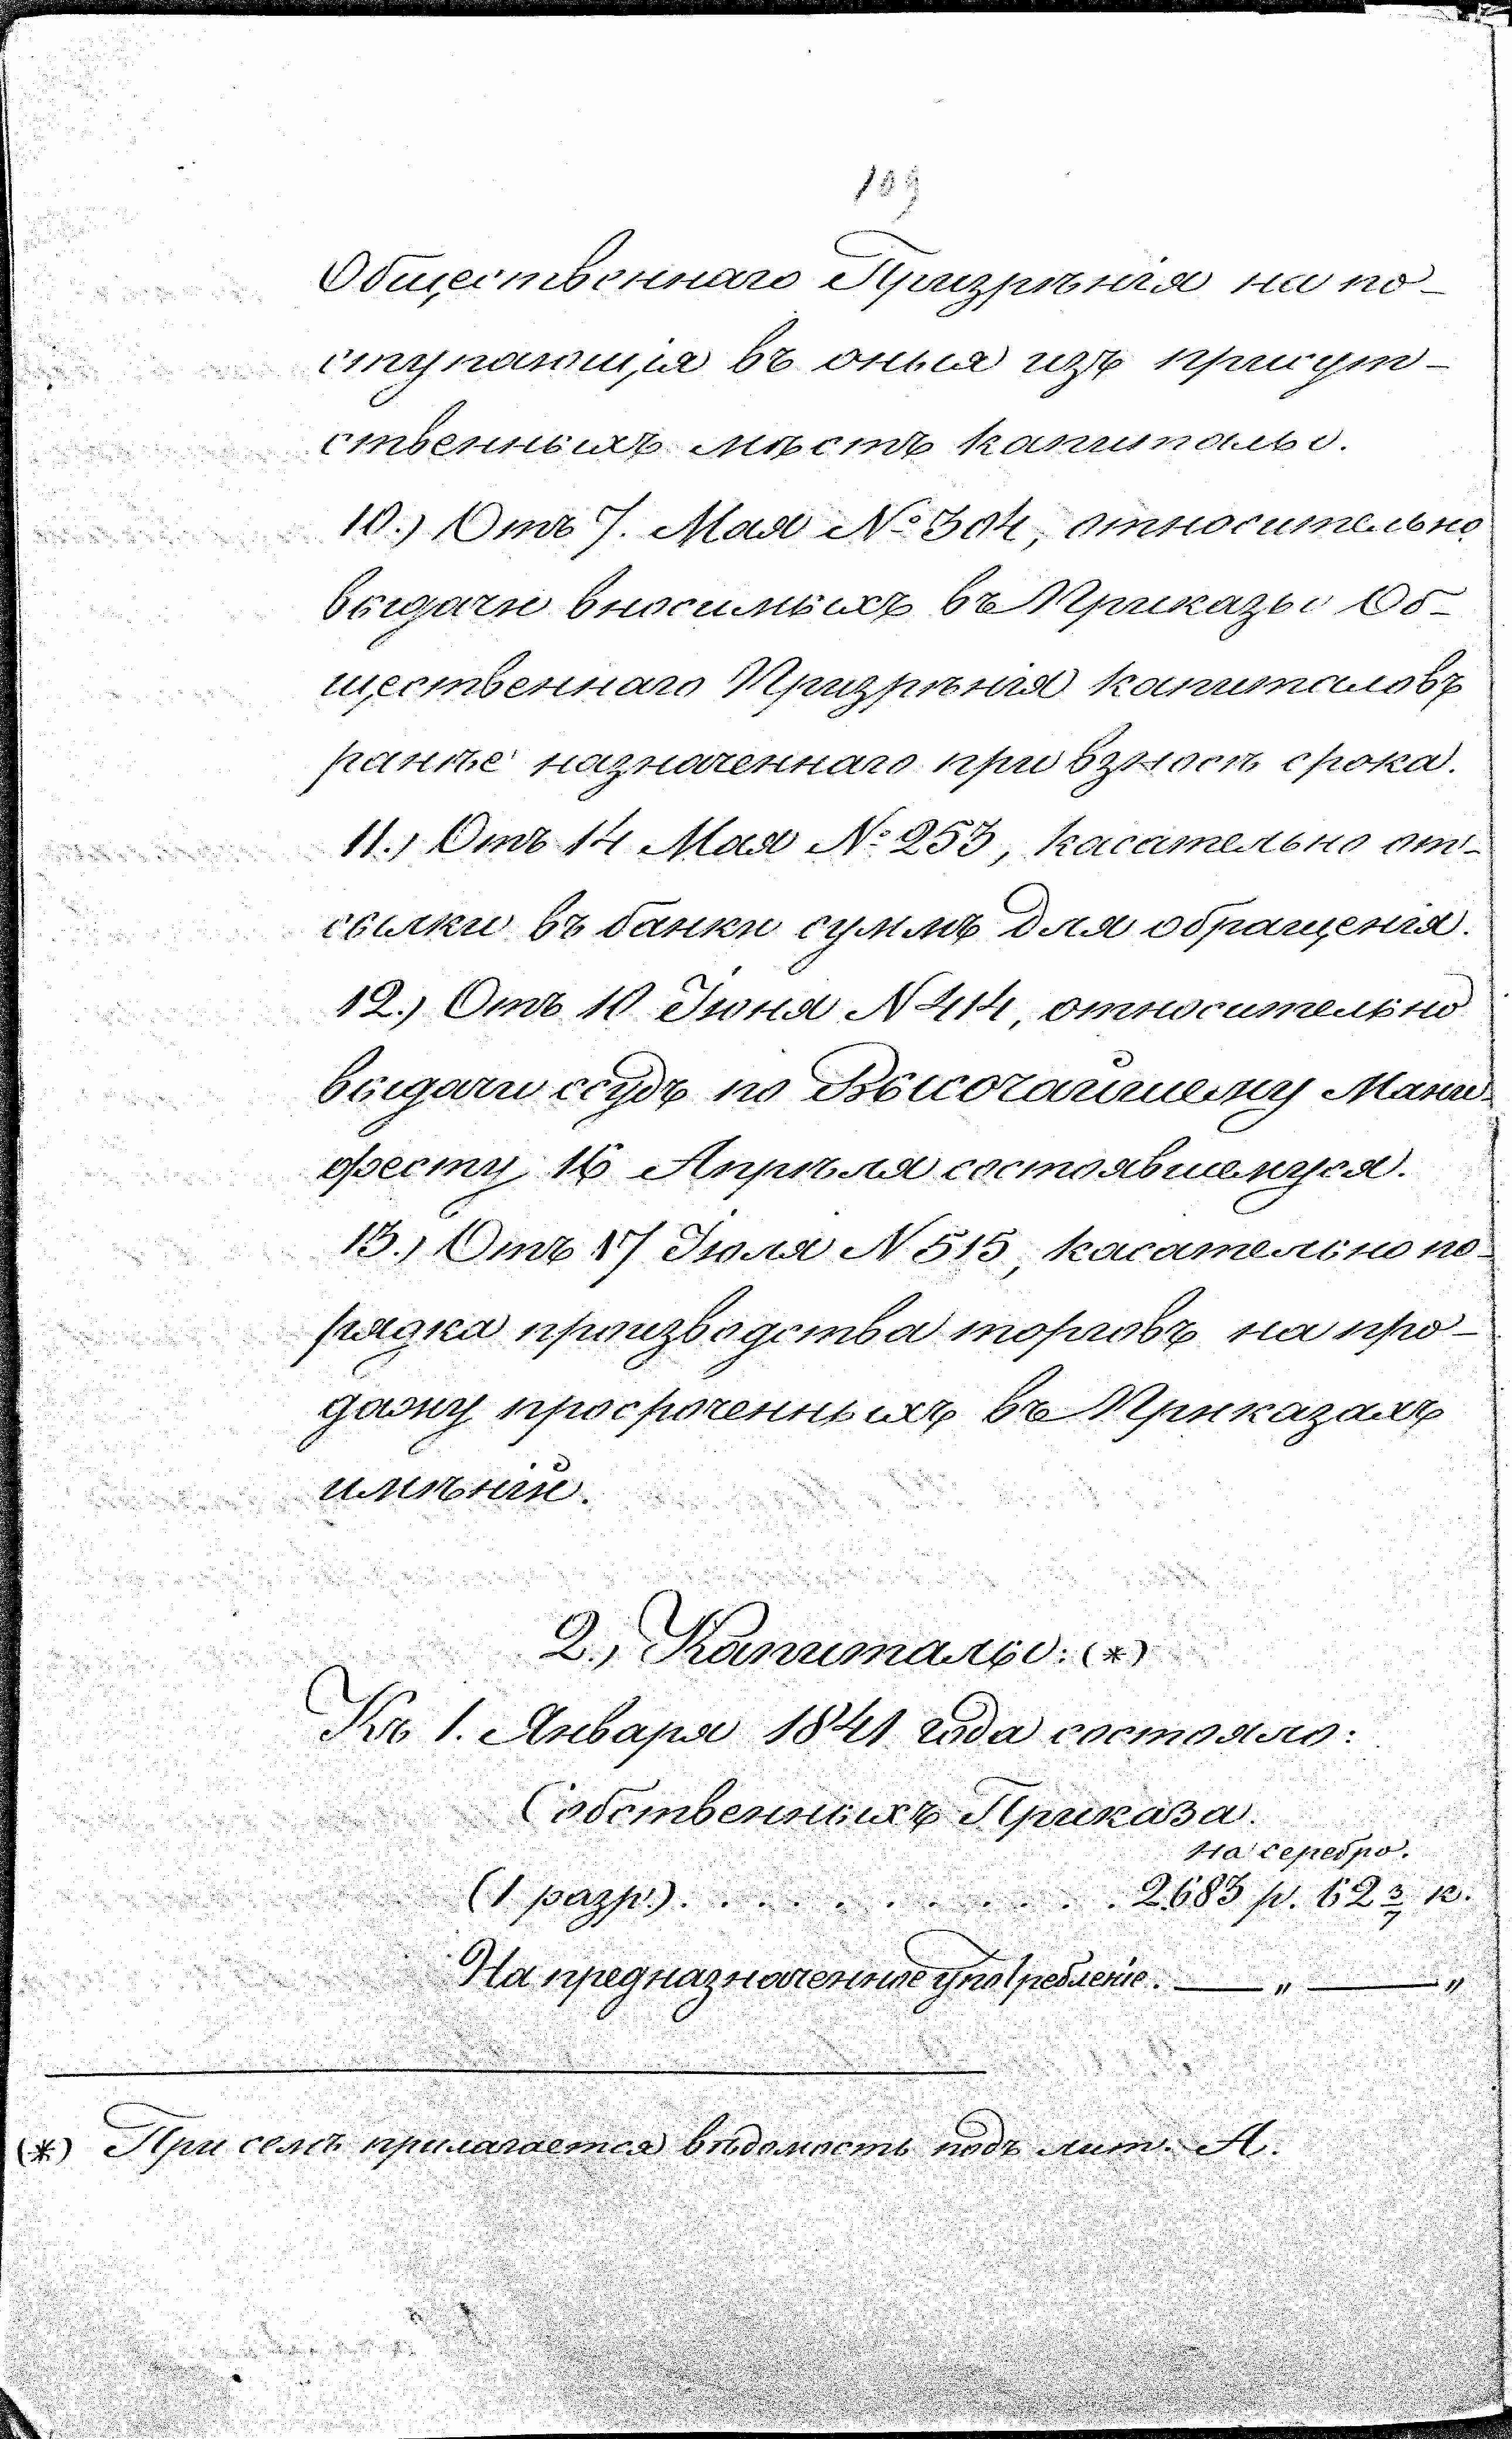 109
Общественнаго Призрѣнія на по-
ступающія въ оныя изъ присут-
ственныхъ мѣстъ капиталы.
10.) Отъ 7. Мая № 304, относительно
выдачи вносимыхъ въ Приказы Об-
щественнаго Призрѣнія капиталовъ
ранѣе назначеннаго при взносѣ срока.
11.) Отъ 14 Мая № 253, касательно от-
сылки въ банки суммъ для обращенія.
12.) Отъ 10 Іюня N 414, относительно
выдачи ссудъ по Высочайшему Мани-
фесту 16 Апрѣля состоявшемуся.
13.) Отъ 17 Іюля N 515, касательно по-
рядка производства торговъ на про-
дажу просроченныхъ въ Приказахъ
имѣній.
2.) Капиталы: (*)
Къ 1. Января 1841 года состояло:
Собственныхъ Приказа.
на серебро.
(1 разр.) . . . . . . . . . . 2683 р. 62 3/7 к.
На предназначенное употребленіе. — „ — „
(*) При семъ прилагается вѣдомость подъ лит. А.